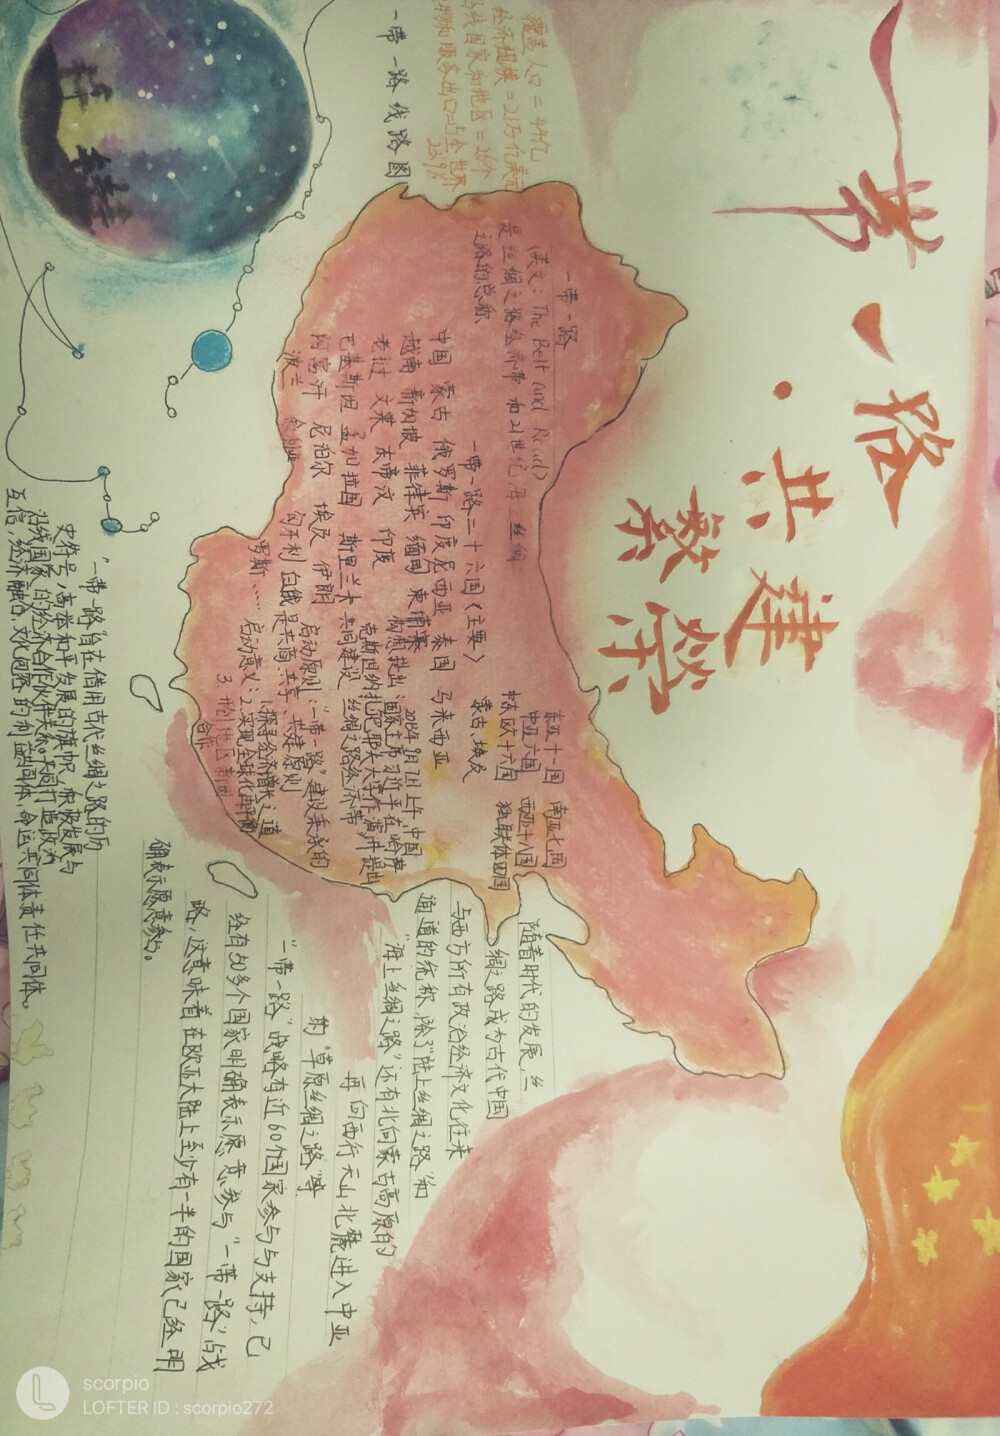 一带一路
·共建
繁荣
覆盖人口=44亿
经济规模=21万亿美元
沿线国家和地区=26个
一带一路线路图
一带一路
(英文：The Belt and Road)
是丝绸之路经济带和21世纪海上丝绸
之路的总称
一带一路二十六国(主要)
中国 蒙古 俄罗斯 印度尼西亚 泰国 马来西亚
越南 新加坡 菲律宾 缅甸 柬埔寨
老挝 文莱 东帝汶 印度
巴基斯坦 孟加拉国 斯里兰卡
阿富汗 尼泊尔 埃及 伊朗
波兰 匈牙利 白俄
罗斯……
东亚十一国 南亚七国
中亚六国 西亚十八国
中东欧十六国 独联体四国
蒙古、埃及
构想提出：2013年9月7日上午，中国
国家主席习近平在哈萨
克斯坦纳扎尔巴耶夫大学作演讲，提出
共同建设“丝绸之路经济带”
启动原则：“一带一路”建设秉承的
是共商、共享、共建原则
启动意义：1.探寻经济增长之道
2.实现全球化再平衡
3.
合作
随着时代的发展，丝
绸之路成为古代中国
与西方所有政治经济文化往来
通道的统称，除了“陆上丝绸之路”和
“海上丝绸之路”还有北向蒙古高原的
再向西行天山北麓进入中亚
的“草原丝绸之路”等
“一带一路”战略有近60个国家参与与支持，已
经有50多个国家明确表示愿意参与“一带一路”战
略，这意味着在欧亚大陆上至少有一半的国家已经明
确表示愿意参与。
“一带一路”旨在借用古代丝绸之路的历
史符号，高举和平发展的旗帜，积极发展与
沿线国家的经济合作伙伴关系。共同打造政治
互信，经济融合，文化包容的利益共同体，命运共同体责任共同体。
scorpio
LOFTER ID : scorpio272